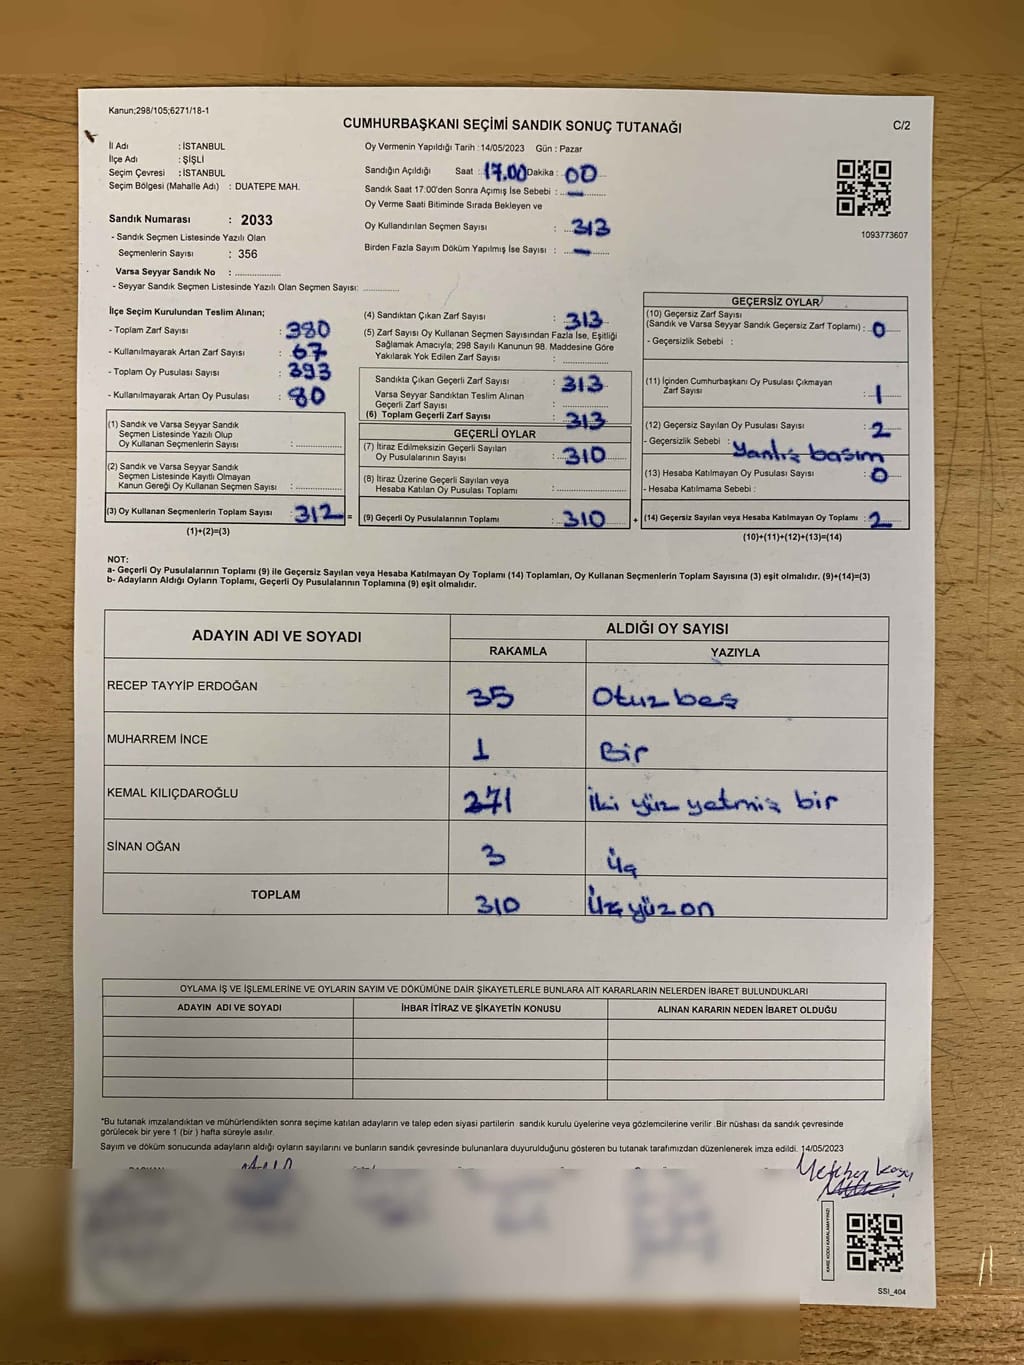 Kanun;298/105;6271/18-1
CUMHURBAŞKANI SEÇİMİ SANDIK SONUÇ TUTANAĞI
C/2
İl Adı : İSTANBUL
İlçe Adı : ŞİŞLİ
Seçim Çevresi : İSTANBUL
Seçim Bölgesi (Mahalle Adı) : DUATEPE MAH.
Sandık Numarası : 2033
- Sandık Seçmen Listesinde Yazılı Olan
Seçmenlerin Sayısı : 356
Varsa Seyyar Sandık No : ....................
- Seyyar Sandık Seçmen Listesinde Yazılı Olan Seçmen Sayısı: ...............
Oy Vermenin Yapıldığı Tarih : 14/05/2023 Gün : Pazar
Sandığın Açıldığı Saat : 17.00 Dakika : 00
Sandık Saat 17.00'den Sonra Açımış İse Sebebi : —
Oy Verme Saati Bitiminde Sırada Bekleyen ve
Oy Kullandırılan Seçmen Sayısı : 313
Birden Fazla Sayım Döküm Yapılmış İse Sayısı : —
1093773607
İlçe Seçim Kurulundan Teslim Alınan;
- Toplam Zarf Sayısı : 380
- Kullanılmayarak Artan Zarf Sayısı : 67
- Toplam Oy Pusulası Sayısı : 393
- Kullanılmayarak Artan Oy Pusulası : 80
(1) Sandık ve Varsa Seyyar Sandık
Seçmen Listesinde Yazılı Olup
Oy Kullanan Seçmenlerin Sayısı : ....................
(2) Sandık ve Varsa Seyyar Sandık
Seçmen Listesinde Kayıtlı Olmayan
Kanun Gereği Oy Kullanan Seçmen Sayısı : ....................
(3) Oy Kullanan Seçmenlerin Toplam Sayısı : 312 =
(1)+(2)=(3)
(4) Sandıktan Çıkan Zarf Sayısı : 313
(5) Zarf Sayısı Oy Kullanan Seçmen Sayısından Fazla İse, Eşitliği
Sağlamak Amacıyla; 298 Sayılı Kanunun 98. Maddesine Göre
Yakılarak Yok Edilen Zarf Sayısı : ....................
Sandıkta Çıkan Geçerli Zarf Sayısı : 313
Varsa Seyyar Sandıktan Teslim Alınan
Geçerli Zarf Sayısı : ....................
(6) Toplam Geçerli Zarf Sayısı : 313
GEÇERLİ OYLAR
(7) İtiraz Edilmeksizin Geçerli Sayılan
Oy Pusulalarının Sayısı : 310
(8) İtiraz Üzerine Geçerli Sayılan veya
Hesaba Katılan Oy Pusulası Toplamı : ....................
(9) Geçerli Oy Pusulalarının Toplamı : 310 +
GEÇERSİZ OYLAR
(10) Geçersiz Zarf Sayısı
(Sandık ve Varsa Seyyar Sandık Geçersiz Zarf Toplamı) : 0
- Geçersizlik Sebebi :
(11) İçinden Cumhurbaşkanı Oy Pusulası Çıkmayan
Zarf Sayısı : 1
(12) Geçersiz Sayılan Oy Pusulası Sayısı : 2
- Geçersizlik Sebebi : Yanlış basım
(13) Hesaba Katılmayan Oy Pusulası Sayısı : 0
- Hesaba Katılmama Sebebi :
(14) Geçersiz Sayılan veya Hesaba Katılmayan Oy Toplamı : 2
(10)+(11)+(12)+(13)=(14)
NOT:
a- Geçerli Oy Pusulalarının Toplamı (9) ile Geçersiz Sayılan veya Hesaba Katılmayan Oy Toplamı (14) Toplamları, Oy Kullanan Seçmenlerin Toplam Sayısına (3) eşit olmalıdır. (9)+(14)=(3)
b- Adayların Aldığı Oyların Toplamı, Geçerli Oy Pusulalarının Toplamına (9) eşit olmalıdır.
ADAYIN ADI VE SOYADI ALDIĞI OY SAYISI
RAKAMLA YAZIYLA
RECEP TAYYİP ERDOĞAN 35 Otuz beş
MUHARREM İNCE 1 Bir
KEMAL KILIÇDAROĞLU 271 İki yüz yetmiş bir
SİNAN OĞAN 3 Üç
TOPLAM 310 Üç yüz on
OYLAMA İŞ VE İŞLEMLERİNE VE OYLARIN SAYIM VE DÖKÜMÜNE DAİR ŞİKAYETLERLE BUNLARA AİT KARARLARIN NELERDEN İBARET BULUNDUKLARI
ADAYIN ADI VE SOYADI İHBAR İTİRAZ VE ŞİKAYETİN KONUSU ALINAN KARARIN NEDEN İBARET OLDUĞU
*Bu tutanak imzalandıktan ve mühürlendikten sonra seçime katılan adayların ve talep eden siyasi partilerin sandık kurulu üyelerine veya gözlemcilerine verilir .Bir nüshası da sandık çevresinde
görülecek bir yere 1 (bir ) hafta süreyle asılır.
Sayım ve döküm sonucunda adayların aldığı oyların sayılarını ve bunların sandık çevresinde bulunanlara duyurulduğunu gösteren bu tutanak tarafımızdan düzenlenerek imza edildi. 14/05/2023
KARE KODU KARALAMAYINIZ!
SSI_404